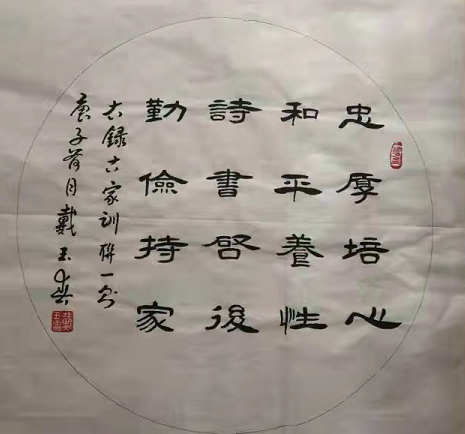 忠厚培心
和平養性
詩書啓後
勤儉持家
右錄古家訓聯一則
庚子荷月戴玉